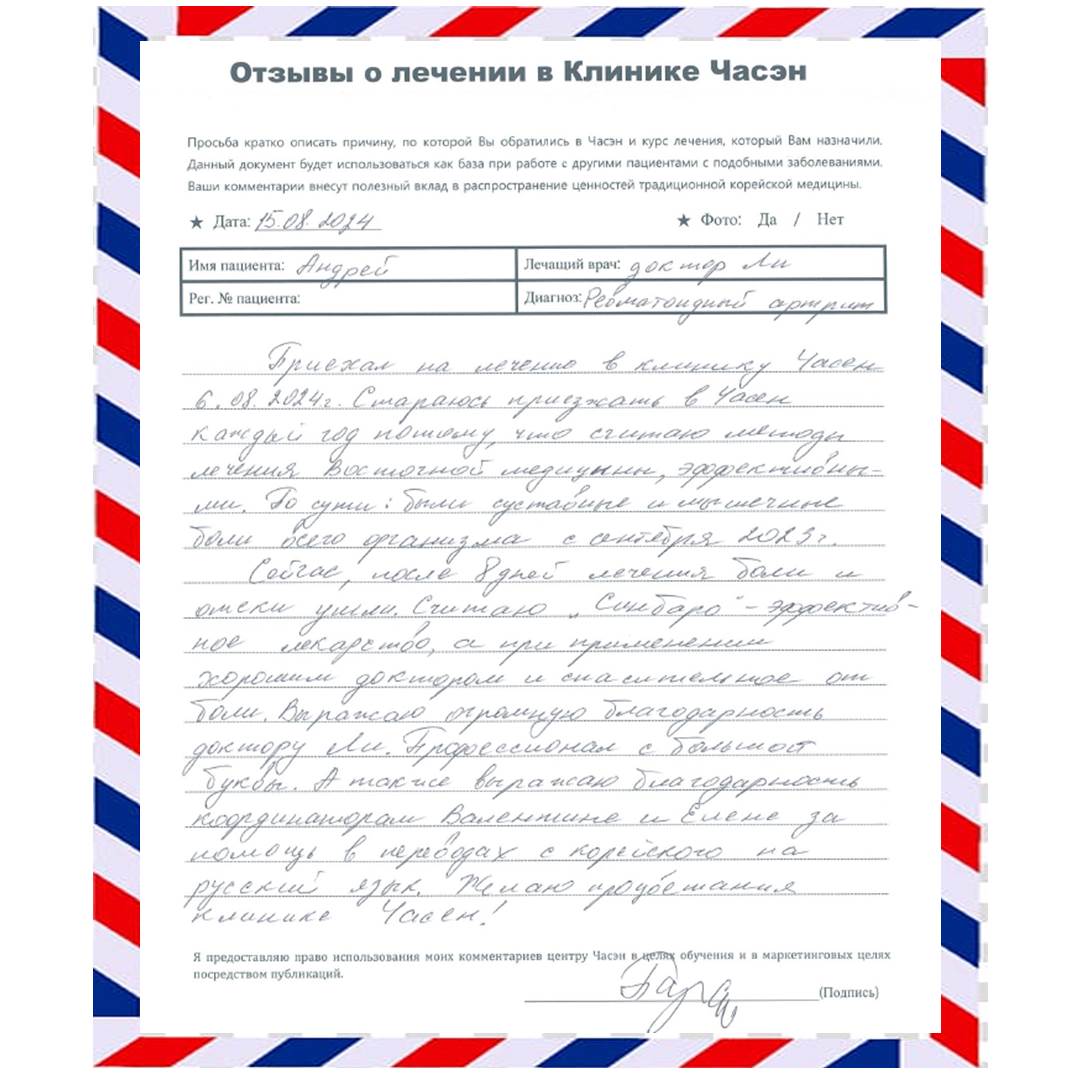 Отзывы о лечении в Клинике Часэн
Просьба кратко описать причину, по которой Вы обратились в Часэн и курс лечения, который Вам назначили.
Данный документ будет использоваться как база при работе с другими пациентами с подобными заболеваниями.
Ваши комментарии внесут полезный вклад в распространение ценностей традиционной корейской медицины.
★ Дата: 15.08.2024 ★ Фото: Да / Нет
Имя пациента: Андрей Лечащий врач: доктор Ли
Рег. № пациента: Диагноз: Ревматоидный артрит
Приехал на лечение в клинику Часен
6.08.2024г. Стараюсь приезжать в Часен
каждый год потому, что считаю методы
лечения Восточной медицины, эффективны-
ми. По сути: были суставные и мышечные
боли всего организма с сентября 2023г.
Сейчас, после 8 дней лечения боли и
отеки ушли. Считаю „Синбаро" - эффектив-
ное лекарство, а при применении
хорошим доктором и спасительное от
боли. Выражаю огромную благодарность
доктору Ли. Профессионал с большой
буквы. А также выражаю благодарность
координаторам Валентине и Елене за
помощь в переводах с корейского на
русский язык. Желаю процветания
клинике Часен!
Я предоставляю право использования моих комментариев центру Часэн в целях обучения и в маркетинговых целях
посредством публикаций.
(Подпись)